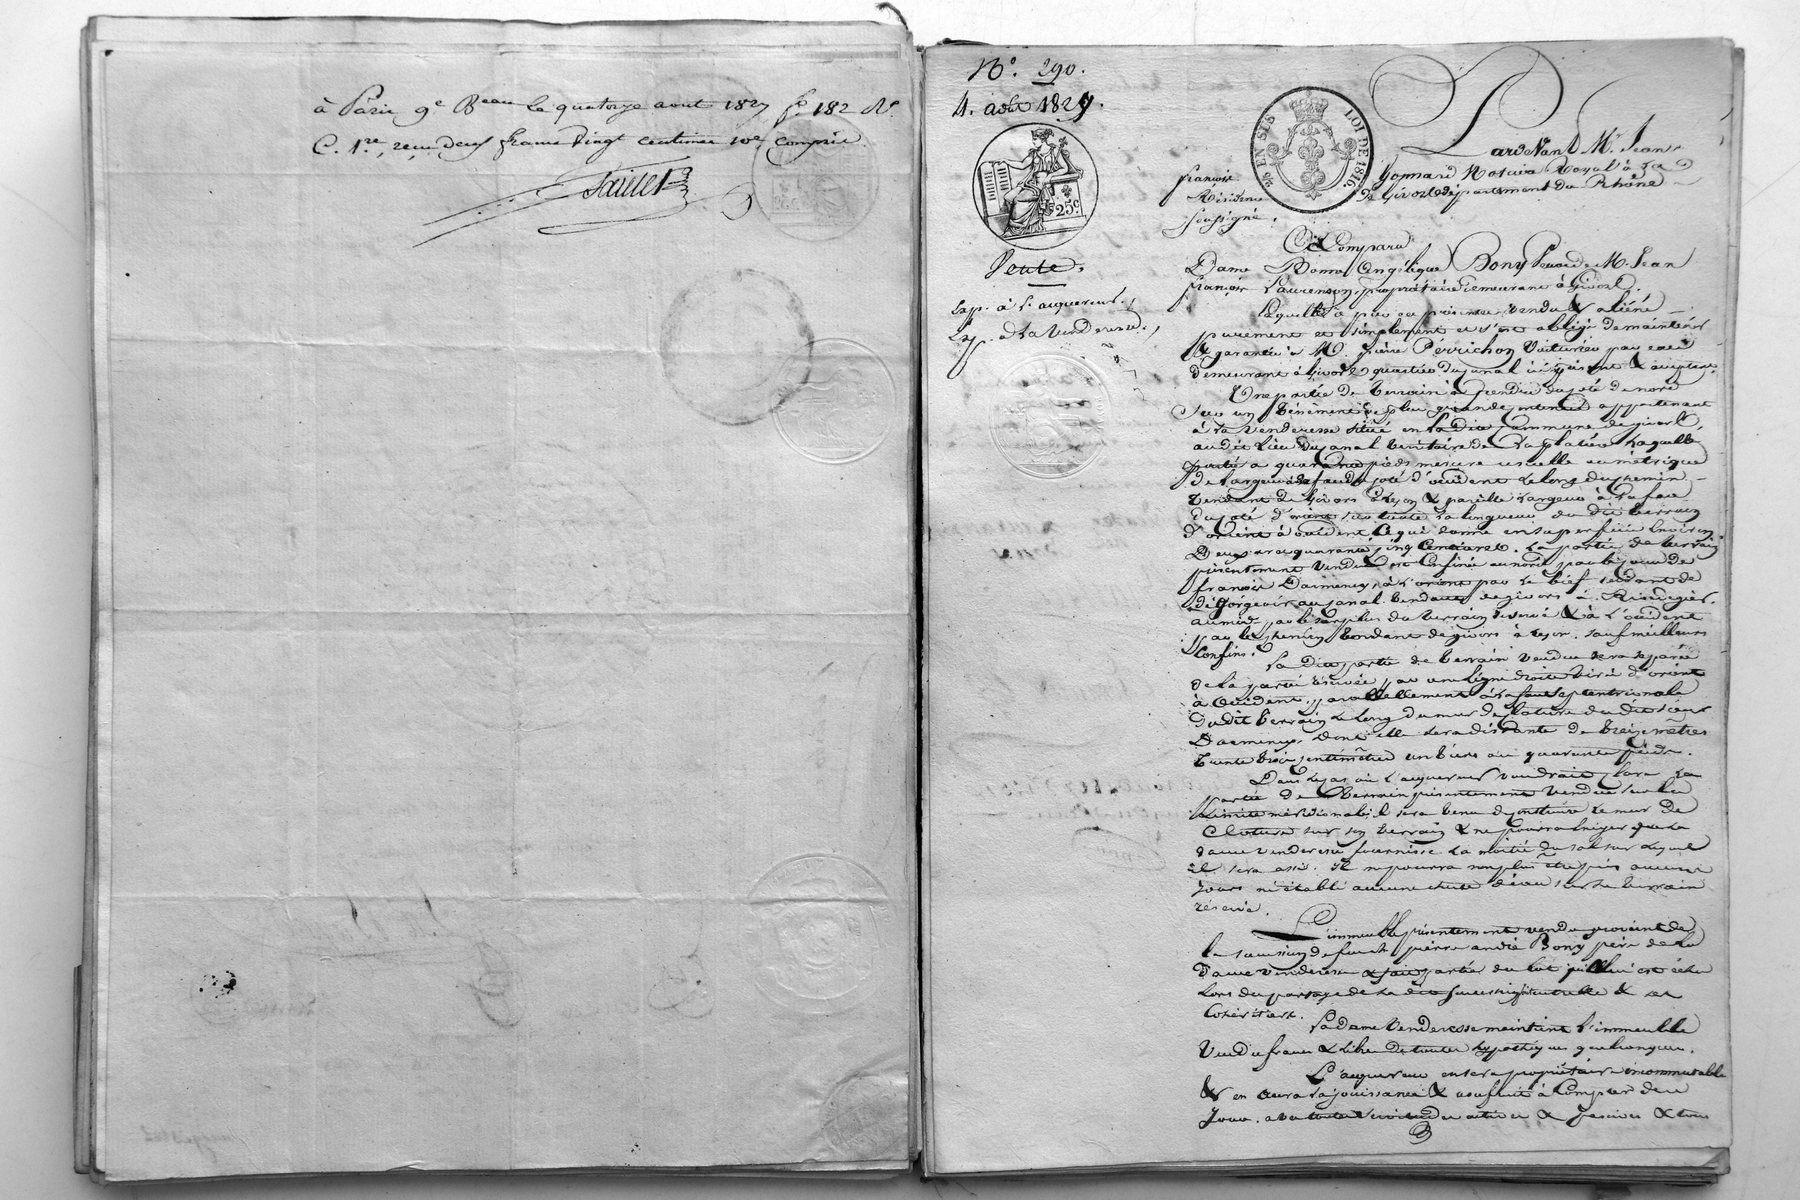 à Paris 9e Beau le quatorze aout 1827 fo 182 Ro
C. 1re, reçu deux francs vingt centimes 10e compris.
Taillet
No. 290.
4. août 1827.
25c
Vente.
Exp. à l'acquereur.
Exp. à la venderesse.
EN SUS LOI DE 1816.
Pardevant Me. Jean
françois Gonnard Notaire Royal à la
Résidence de Givors département du Rhône
soussigné.
A Comparu
Dame Bonne Angélique Bony veuve de M. Jean
françois Laurenson, propriétaire demeurant à Givors.
Laquelle a par ces présentes vendu & aliéné
purement et simplement et s'est obligée de maintenir
& garantir à M. pierre Perrichon voiturier par eau
demeurant à Givors quartier du Canal ici présent & acceptant.
Une partie de terrain à prendre du côté de nord
sur un tènement de plus grande étendue appartenant
à la venderesse situé en la dite Commune de givors,
au dit lieu du Canal territoire de laquelle
partie a quarante pieds mesure usuelle ou métrique
de largeur à la face du côté d'occident le long du chemin
tendant de Givors à Lyon & pareille largeur à la face
du côté d'orient sur toute la longueur du dit terrain
d'orient à occident, ce qui donne en superficie environ
Deux ares quarante cinq Centiares. La partie de terrain
présentement vendue est Confinée au nord par
françois Darmency, à l'orient par le bief servant de
dégorgeoir au Canal tendant de givors à Rivedegier,
au midi par le surplus du terrain réservé & à l'occident
par le chemin tendant de givors à Lyon. sauf meilleurs
Confins.
La dite partie de terrain vendue sera séparée
de la partie réservée par une ligne droite tirée d'orient
à Occident, parallellement à la face septentrionale
du dit terrain le long du mur de cloture du dit sieur
Darmency, dont elle sera distante de treize mètres
trente trois centimètres un tiers ou quarante pieds.
Dans le cas où l'acquereur voudrait clore la
partie de terrain présentement vendue sur la
limite méridionale, il sera tenu de construire le mur de
Cloture sur son terrain & ne pourra exiger que la
dame venderesse fournisse la moitié du sol sur lequel
il sera assis. Il ne pourra non plus être pris aucuns
jours ni établi aucune chute d'eau sur le terrain
réservé.
L'immeuble présentement vendu provient de
la succession de feu pierre andré Bony père de la
dame venderesse & fait partie du lot qui lui est échu
lors du partage de la dite succession entre elle & ses
Cohéritiers.
La dame venderesse maintient l'immeuble
vendu franc & libre de toutes hypothèques quelconques.
L'acquereur en sera propriétaire incommutable
& en aura la jouissance & usufruit à Compter de ce
Jour, avec toutes servitudes actives & passives & tous